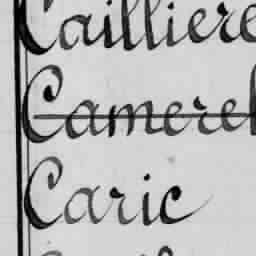 Cailliere
Camerel
Caric